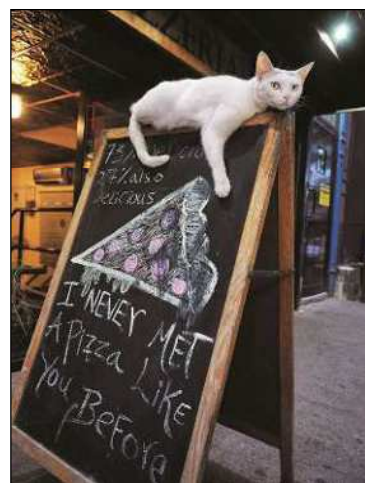 ZERIA
73%
27% also
delicious
I NEVER MET
A Pizza Like
You Before